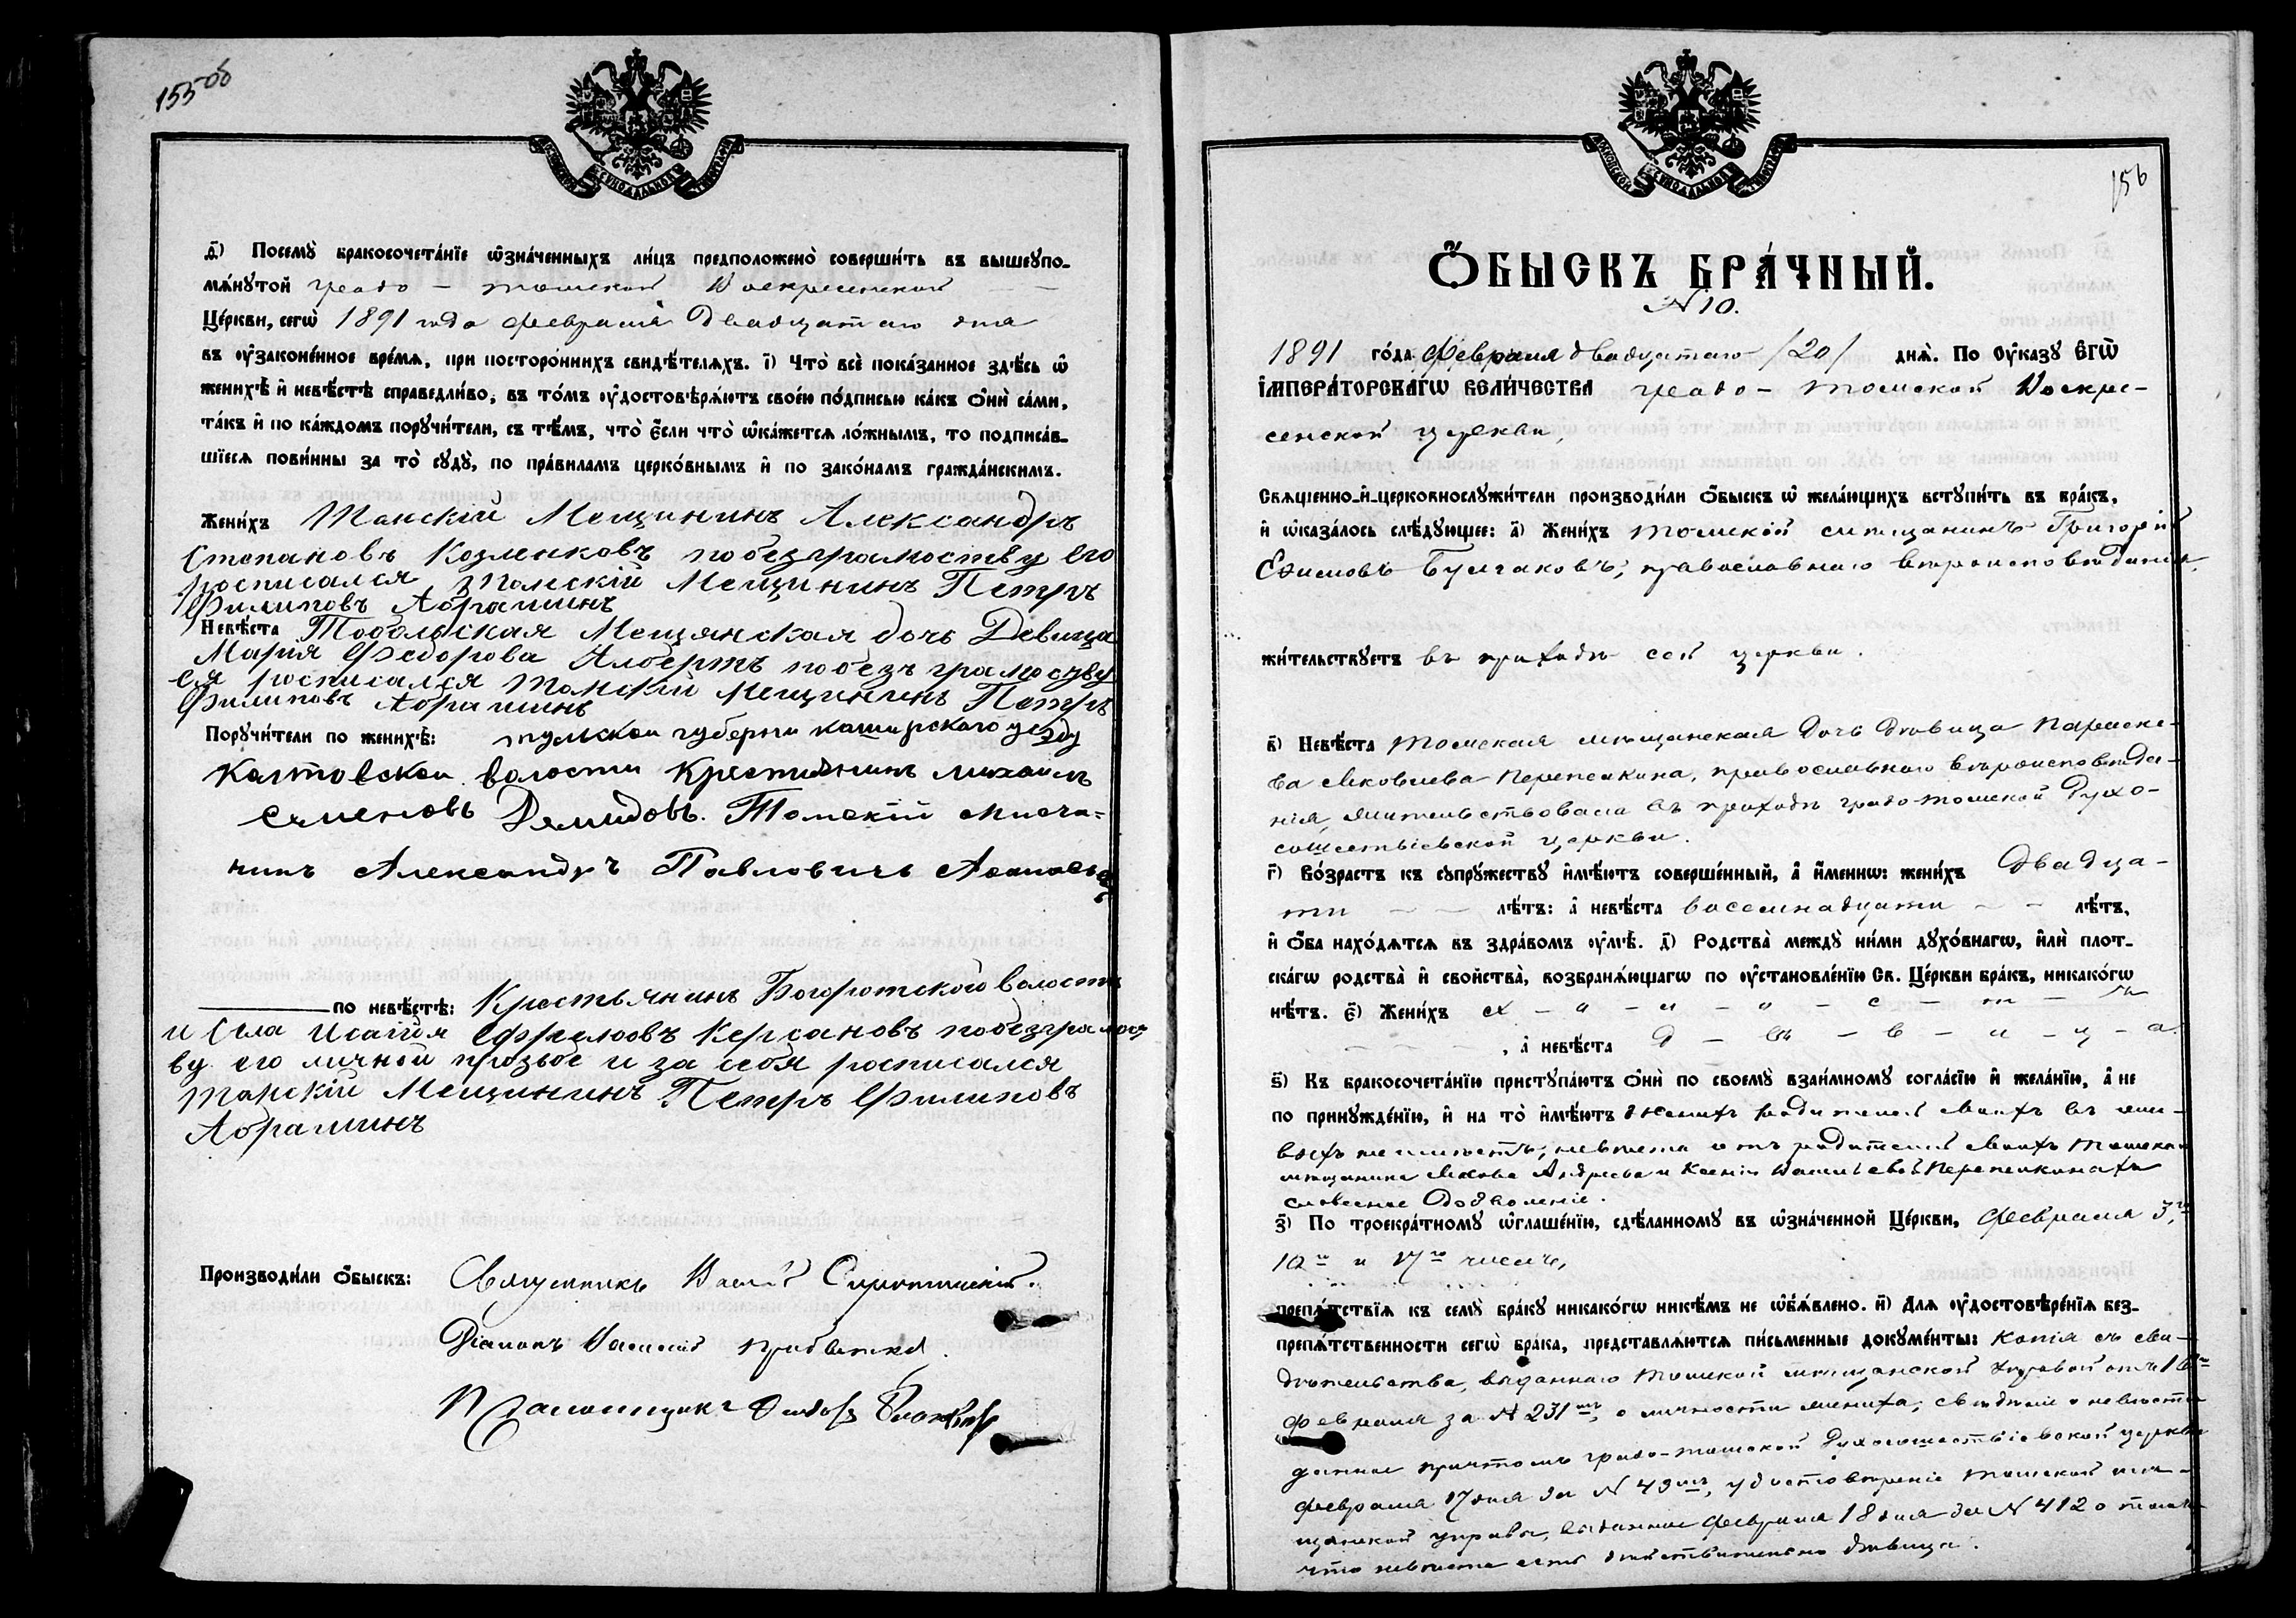 155 об
МОСКОВСКОЙ СѴНОДАЛЬНОЙ ТИПОГРАФІИ
д҃і) Посемꙋ̀ бракосочета́нїе ѡ҆зна́ченныхъ ли́цъ предположено̀ соверши́ть въ вышеꙋпо-
мѧ́нꙋтой градо - Томской Воскресенской
Це́ркви, сегѡ̀ 1891 года февраля двадцатаго дня
въ ᲂу҆законе́нное вре́мѧ, при посторо́ннихъ свидѣ́телѧхъ. і҃) Что̀ всѐ пока́занное здѣ́сь ѡ҆
женихѣ̀ и҆ невѣ́стѣ справедли́во, въ то́мъ ᲂу҆достовѣрѧ́ютъ свое́ю по́дписью ка́къ ѻ҆нѝ са́ми,
та́къ и҆ по ка́ждомъ порꙋчи́тели, съ тѣ́мъ, что̀ є҆́сли что̀ ѡ҆ка́жетсѧ ло́жнымъ, то подписа́в-
шїесѧ пови́нны за то̀ сꙋдꙋ̀, по пра́виламъ церко́внымъ и҆ по зако́намъ гражда́нскимъ.
Жени́хъ Томскій Мещининъ Александръ
Степановъ Козленковъ побезграмоству его
росписался Томскій Мещининъ Петръ
Филиповъ Абраминъ
Невѣ́ста Тобольская Мещянская дочь Девица
Мария Федорова Албертъ побезъграмоству
ея росписался Томскій Мещининъ Петръ
Филиповъ Абраминъ
Порꙋчи́тели по женихѣ̀: тулскои губерни каширскаго уезду
Колтовскои волости Крестиянинъ михаилъ
семеновъ Демидовъ. Томскій мисча=
нинъ Александръ Павловичь
по невѣ́стѣ: Крестьянинъ Богоротскойволости
и села Исаїия Керсановъ побезграмос
ву его личной прозьбе и за себя росписался
Томскій Мещининъ Петръ Филиповъ
Абраминъ
Производи́ли ѻ҆́быскъ: Священникъ Василій Сиротинскій.
Діаконъ Василій
Псаломщикъ
156
МОСКОВСКОЙ СѴНОДАЛЬНОЙ ТИПОГРАФІИ
Ѻ҆́БЫСКЪ БРА́ЧНЫЙ.
№ 10.
1891 го́да февраля двадцатаго /20/ днѧ̀. По ᲂу҆казꙋ Є҆гѡ̀
І҆мпера́торскагѡ вели́чества градо - Томской Воскре-
сенской церкви,
Свѧще́нно-и҆-церковнослꙋжи́тели производи́ли ѻ҆́быскъ ѡ҆ жела́ющихъ встꙋпи́ть въ бра́къ,
и҆ ѡ҆каза́лось слѣ́дꙋющее: а҃) Жени́хъ томскій мѣщанинъ Григорій
Ефимовъ Булгаковъ, православнаго вѣроисповѣданія,
жи́тельствꙋетъ въ приходѣ сей церкви.
в҃) Невѣ́ста томская мѣщанская дочь дѣвица Параске-
ва Яковлева Перепелкина, православнаго вѣроисповѣда-
нія, жительствовала въ приходѣ градо-томской Духо-
сошествіевской церкви.
г҃) Во́зрастъ къ сꙋпрꙋ́жествꙋ и҆мѣ́ютъ соверше́нный, а҆ и҆́меннѡ: жени́хъ двадца-
ти лѣ́тъ: а҆ невѣ́ста восемнадцати лѣ́тъ,
и҆ ѻ҆́ба нахо́дѧтсѧ въ здра́вомъ ᲂу҆мѣ̀. д҃) Родства̀ междꙋ̀ ни́ми дꙋхо́внагѡ, и҆лѝ плот-
ска́гѡ родства̀ и҆ сво́йства̀, возбранѧ́ющагѡ по ᲂу҆становле́нїю Св. Це́ркви бра́къ, никако́гѡ
нѣ́тъ. є҃) Жени́хъ х - о - л - о - с - т - ъ
, а҆ невѣ́ста д - ѣ - в - и - ц - а.
ѕ҃) Къ бракосочета́нїю пристꙋпа́ютъ ѻ҆нѝ по своемꙋ̀ взаи́мномꙋ согла́сїю и҆ жела́нїю, а҆ не
по принꙋжде́нїю, и҆ на то̀ и҆мѣ́ютъ женихъ родителей своихъ въ жи-
выхъ не имѣетъ, невѣста отъ родителей своихъ томскаго
мѣщанина Якова Андреева и Ксеніи Васильевой Перепелкиныхъ
словесное дозволеніе.
з҃) По троекра́тномꙋ ѡ҆глаше́нїю, сдѣ́ланномꙋ въ ѡ҆зна́ченной Це́ркви, февраля 3го,
10го и 17го числъ,
препѧ́тствїѧ къ семꙋ̀ бра́кꙋ никако́гѡ никѣ́мъ не ѡ҆бъѧ́влено. и҃) Длѧ ᲂу҆достовѣре́нїѧ без-
препѧ́тственности сегѡ̀ бра́ка, представлѧ́ютсѧ пи́сьменные докꙋме́нты: копія съ сви-
дѣтельства, выданнаго Томской мѣщанской управой отъ 16го
февраля за № 231мъ, о личности жениха; свѣдѣніе о невѣстѣ
данное причтомъ градо-томской Духосошествіевской церкви
февраля 17 дня за № 49мъ, удостовѣреніе Томской мѣ-
щанской управы, выданное февраля 18 дня за № 412 о томъ,
что невѣста есть дѣйствительно дѣвица.